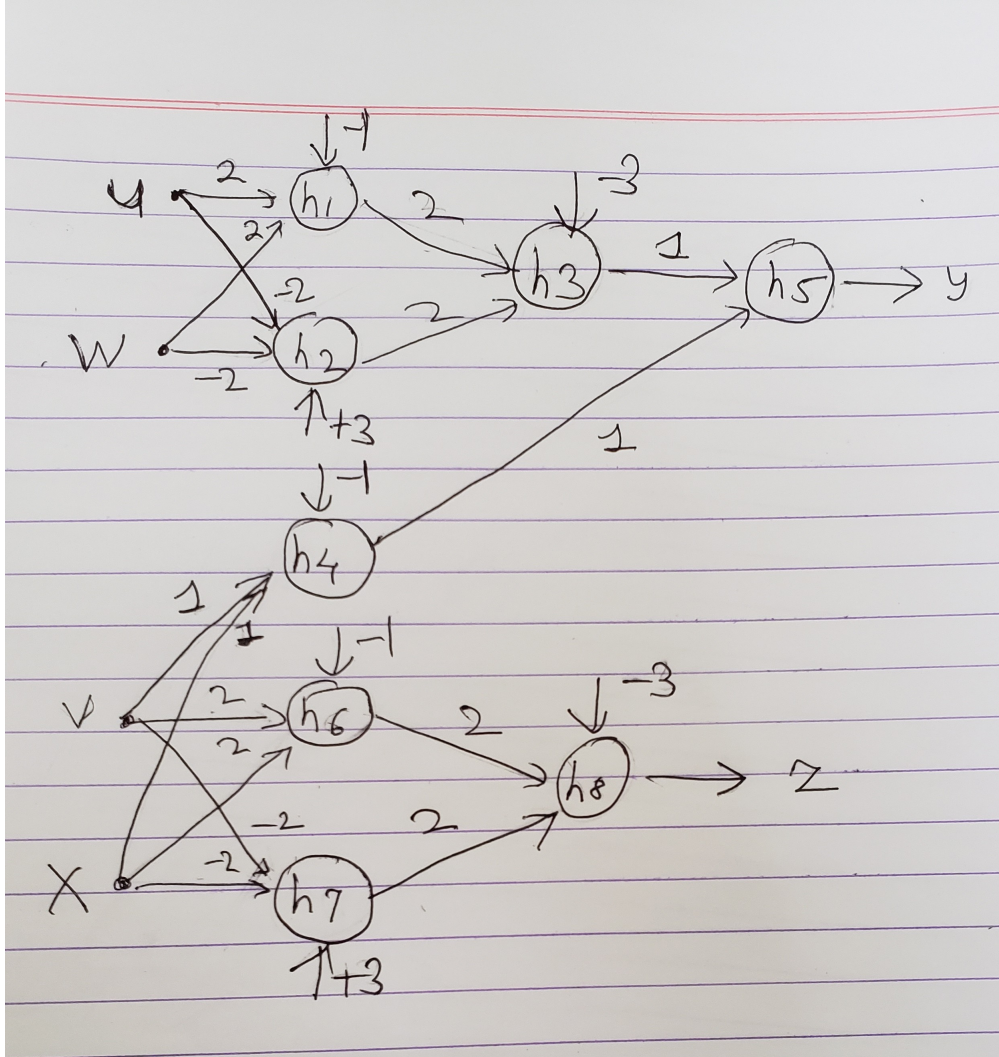 -1
-3
u 2 h1 2
2 1
h3 h5 y
-2 2
W h2
-2
+3
1
-1
h4
1
1
-1
-3
V 2 h6 2
2 h8 z
-2 2
X -2 h7
+3